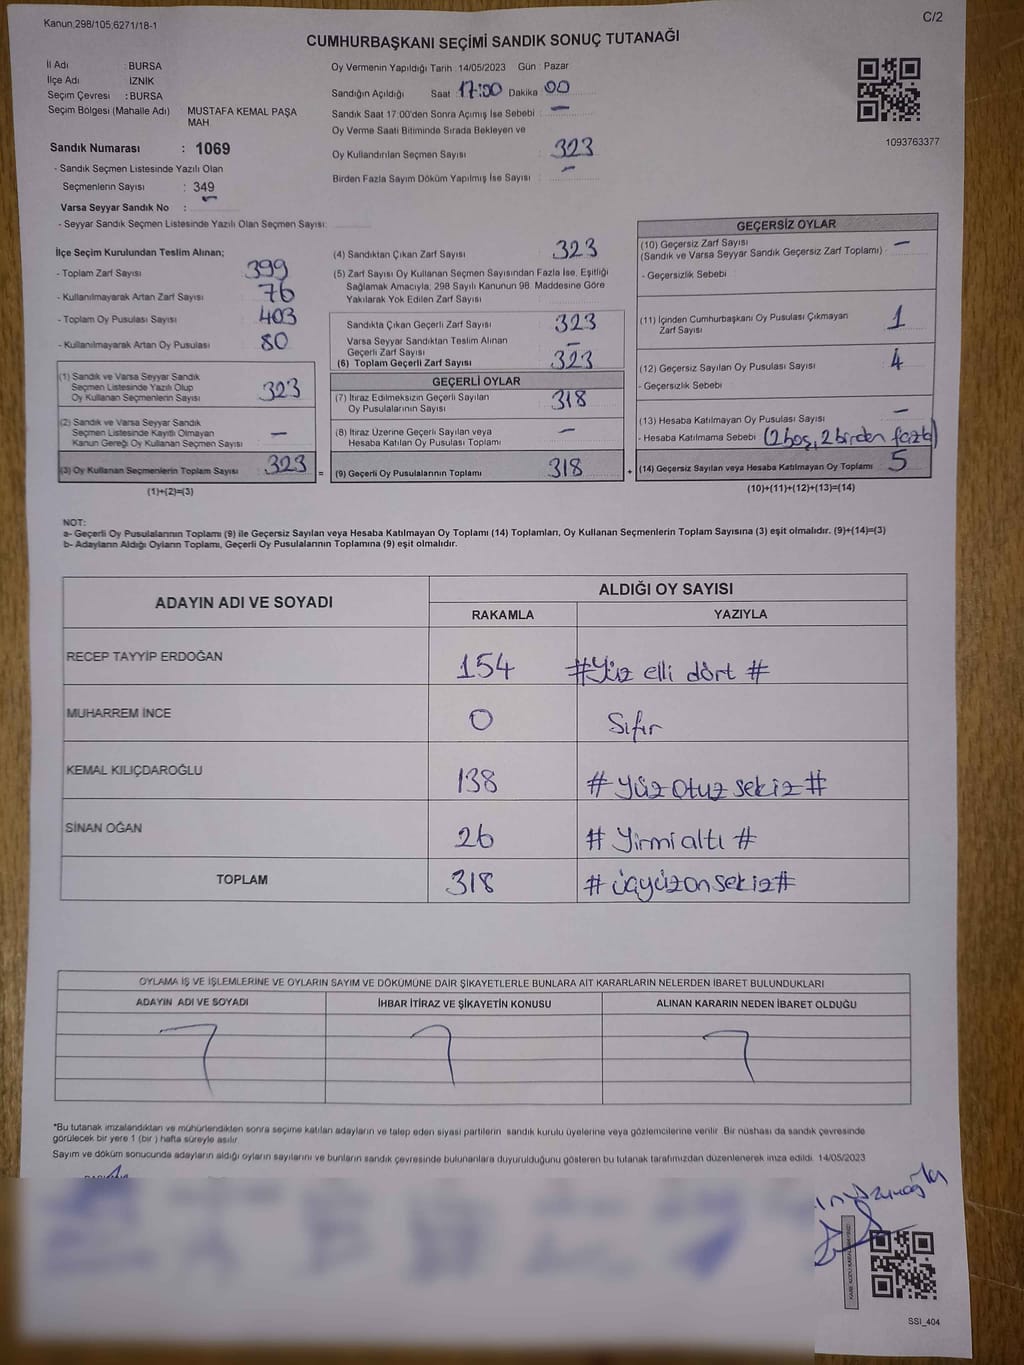 Kanun,298/105,6271/18-1
C/2
CUMHURBAŞKANI SEÇİMİ SANDIK SONUÇ TUTANAĞI
İl Adı : BURSA
İlçe Adı İZNİK
Seçim Çevresi : BURSA
Seçim Bölgesi (Mahalle Adı) MUSTAFA KEMAL PAŞA
MAH
Sandık Numarası : 1069
- Sandık Seçmen Listesinde Yazılı Olan
Seçmenlerin Sayısı : 349
Varsa Seyyar Sandık No : -
- Seyyar Sandık Seçmen Listesinde Yazılı Olan Seçmen Sayısı:
Oy Vermenin Yapıldığı Tarih :14/05/2023 Gün : Pazar
Sandığın Açıldığı Saat :17:00 Dakika 00
Sandık Saat 17:00'den Sonra Açımış İse Sebebi : -
Oy Verme Saati Bitiminde Sırada Bekleyen ve
Oy Kullandırılan Seçmen Sayısı : 323
Birden Fazla Sayım Döküm Yapılmış İse Sayısı : -
1093763377
İlçe Seçim Kurulundan Teslim Alınan;
- Toplam Zarf Sayısı 399
- Kullanılmayarak Artan Zarf Sayısı 76
- Toplam Oy Pusulası Sayısı 403
- Kullanılmayarak Artan Oy Pusulası 80
(1) Sandık ve Varsa Seyyar Sandık
Seçmen Listesinde Yazılı Olup
Oy Kullanan Seçmenlerin Sayısı 323
(2) Sandık ve Varsa Seyyar Sandık
Seçmen Listesinde Kayıtlı Olmayan
Kanun Gereği Oy Kullanan Seçmen Sayısı -
(3) Oy Kullanan Seçmenlerin Toplam Sayısı 323 =
(1)+(2)=(3)
(4) Sandıktan Çıkan Zarf Sayısı 323
(5) Zarf Sayısı Oy Kullanan Seçmen Sayısından Fazla İse, Eşitliği
Sağlamak Amacıyla; 298 Sayılı Kanunun 98. Maddesine Göre
Yakılarak Yok Edilen Zarf Sayısı :
Sandıkta Çıkan Geçerli Zarf Sayısı 323
Varsa Seyyar Sandıktan Teslim Alınan
Geçerli Zarf Sayısı -
(6) Toplam Geçerli Zarf Sayısı 323
GEÇERLİ OYLAR
(7) İtiraz Edilmeksizin Geçerli Sayılan
Oy Pusulalarının Sayısı 318
(8) İtiraz Üzerine Geçerli Sayılan veya
Hesaba Katılan Oy Pusulaları Toplamı -
(9) Geçerli Oy Pusulalarının Toplamı 318 +
GEÇERSİZ OYLAR
(10) Geçersiz Zarf Sayısı
(Sandık ve Varsa Seyyar Sandık Geçersiz Zarf Toplamı) : -
- Geçersizlik Sebebi :
(11) İçinden Cumhurbaşkanı Oy Pusulası Çıkmayan
Zarf Sayısı 1
(12) Geçersiz Sayılan Oy Pusulası Sayısı 4
- Geçersizlik Sebebi :
(13) Hesaba Katılmayan Oy Pusulası Sayısı -
- Hesaba Katılmama Sebebi (2 boş, 2 birden fazla)
(14) Geçersiz Sayılan veya Hesaba Katılmayan Oy Toplamı 5
(10)+(11)+(12)+(13)=(14)
NOT:
a- Geçerli Oy Pusulalarının Toplamı (9) ile Geçersiz Sayılan veya Hesaba Katılmayan Oy Toplamı (14) Toplamları, Oy Kullanan Seçmenlerin Toplam Sayısına (3) eşit olmalıdır. (9)+(14)=(3)
b- Adayların Aldığı Oyların Toplamı, Geçerli Oy Pusulalarının Toplamına (9) eşit olmalıdır.
ADAYIN ADI VE SOYADI
ALDIĞI OY SAYISI
RAKAMLA YAZIYLA
RECEP TAYYİP ERDOĞAN 154 #Yüz elli dört #
MUHARREM İNCE 0 Sıfır
KEMAL KILIÇDAROĞLU 138 # Yüz otuz sekiz #
SİNAN OĞAN 26 # Yirmi altı #
TOPLAM 318 # üçyüzonsekiz #
OYLAMA İŞ VE İŞLEMLERİNE VE OYLARIN SAYIM VE DÖKÜMÜNE DAİR ŞİKAYETLERLE BUNLARA AİT KARARLARIN NELERDEN İBARET BULUNDUKLARI
ADAYIN ADI VE SOYADI İHBAR İTİRAZ VE ŞİKAYETİN KONUSU ALINAN KARARIN NEDEN İBARET OLDUĞU
*Bu tutanak imzalandıktan ve mühürlendikten sonra seçime katılan adayların ve talep eden siyasi partilerin sandık kurulu üyelerine veya gözlemcilerine verilir. Bir nüshası da sandık çevresinde
görülecek bir yere 1 (bir ) hafta süreyle asılır.
Sayım ve döküm sonucunda adayların aldığı oyların sayılarını ve bunların sandık çevresinde bulunanlara duyurulduğunu gösteren bu tutanak tarafımızdan düzenlenerek imza edildi. 14/05/2023
SSI_404